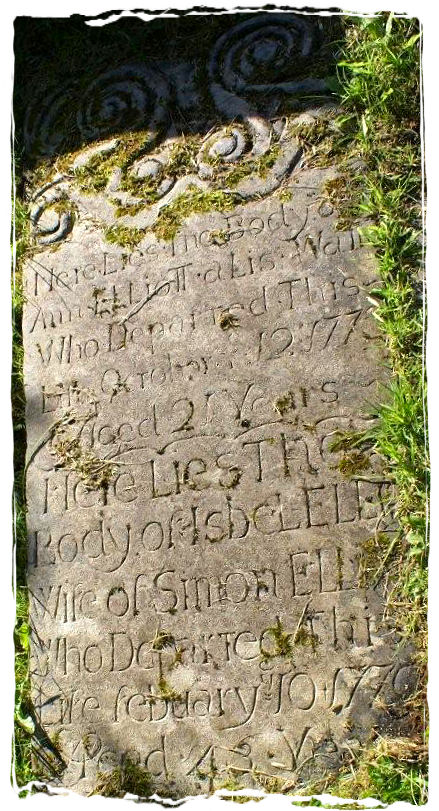 Here Lies The Body o
Ann ELLioTT a Lis Wall
Who Departed This
Life October 12 177
Aged 21 Years
Here Lies The
Body of IsbeL ELL
Wife of Simon ELL
Who Departed This
Life february 10 177
Aged 43 Years